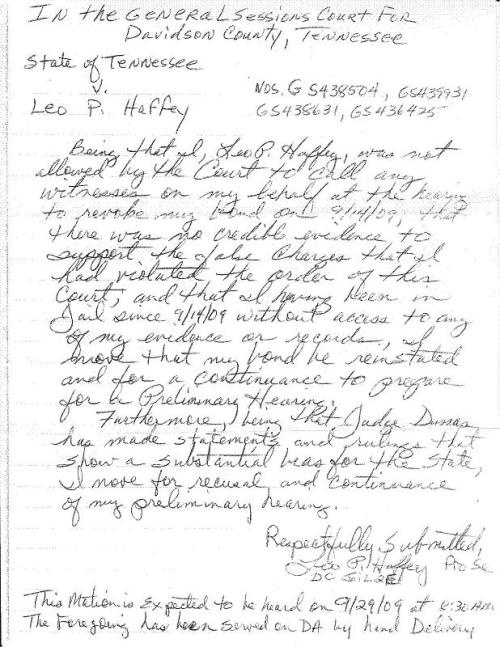 In the General Sessions Court For
Davidson County, Tennessee
State of Tennessee
v.
Leo P. Haffey
NOS. G S438504, GS439931
GS438631, GS436425
Being that I, Leo P. Haffey, was not
allowed by the Court to call any
witnesses on my behalf at the hearing
to revoke my bond on 9/14/09, that
there was no credible evidence to
support the false charges that I
had violated the order of this
Court, and that I having been in
Jail since 9/14/09 without access to any
of my evidence or records, I
move that my bond be reinstated
and for a continuance to prepare
for a Preliminary Hearing.
Furthermore, being that Judge Dumas
has made statements and rulings that
show a substantial beas for the State,
I move for recusal and continuance
of my preliminary hearing.
Respectfully Submitted,
Leo P. Haffey Pro Se
This Motion is Expected to be heard on 9/29/09 at 8:30 AM
The Foregoing has been served on DA by hand Delivery